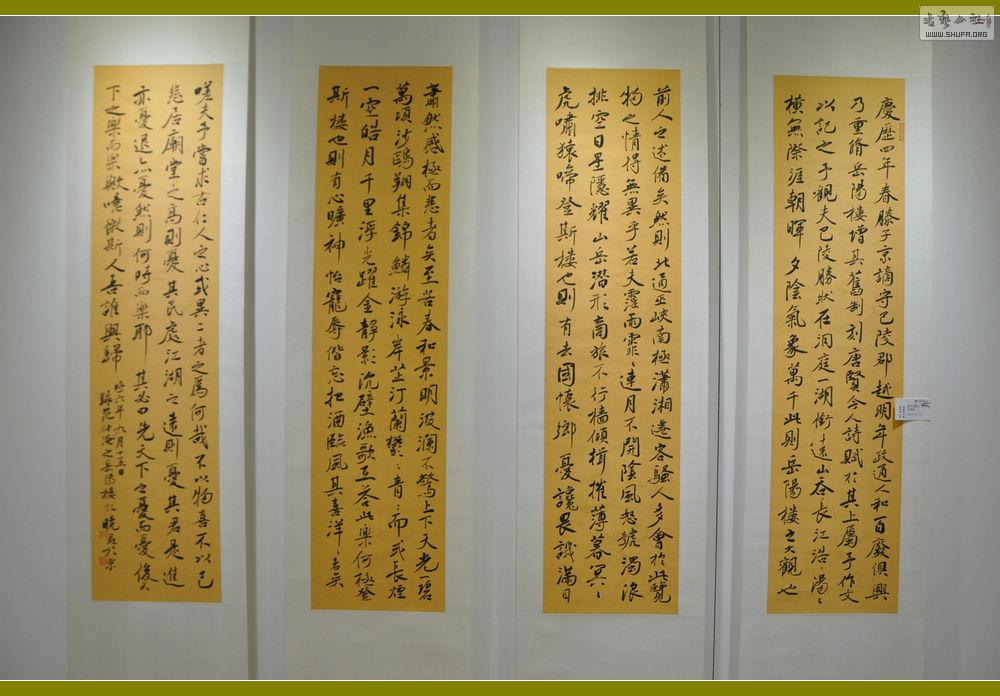 慶歷四年春滕子京謫守巴陵郡越明年政通人和百廢俱興
乃重脩岳陽樓增其舊制刻唐賢今人詩賦於其上屬予作文
以記之予觀夫巴陵勝狀在洞庭一湖銜遠山吞長江浩浩湯湯
橫無際涯朝暉夕陰氣象萬千此則岳陽樓之大觀也
前人之述備矣然則北通巫峽南極瀟湘遷客騷人多會於此覽
物之情得無異乎若夫霪雨霏霏連月不開陰風怒號濁浪
排空日星隱耀山岳潛形商旅不行檣傾楫摧薄暮冥冥
虎嘯猿啼登斯樓也則有去國懷鄉憂讒畏譏滿目
蕭然感極而悲者矣至若春和景明波瀾不驚上下天光一碧
萬頃沙鷗翔集錦鱗游泳岸芷汀蘭鬱鬱青青而或長煙
一空皓月千里浮光躍金靜影沉璧漁歌互答此樂何極登
斯樓也則有心曠神怡寵辱偕忘把酒臨風其喜洋洋者矣
嗟夫予嘗求古仁人之心或異二者之為何哉不以物喜不以己
悲居廟堂之高則憂其民處江湖之遠則憂其君是進
亦憂退亦憂然則何時而樂耶其必曰先天下之憂而憂後天
下之樂而樂歟噫微斯人吾誰與歸
時六年九月十五日
錄范仲淹之岳陽樓記曉於京
書藝公社
WWW.SHUFA.ORG